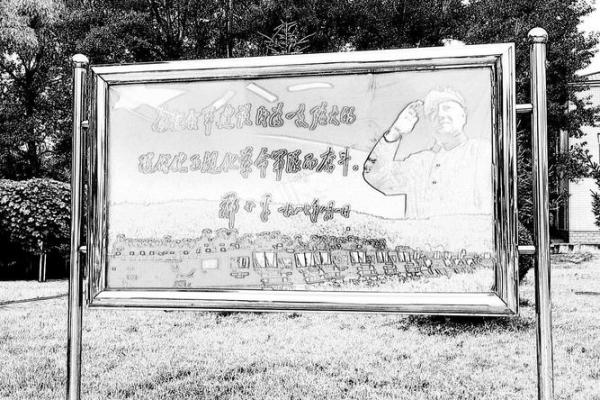 军建设成为一支强大的
现代化正规化革命军队而奋斗。
邓小平